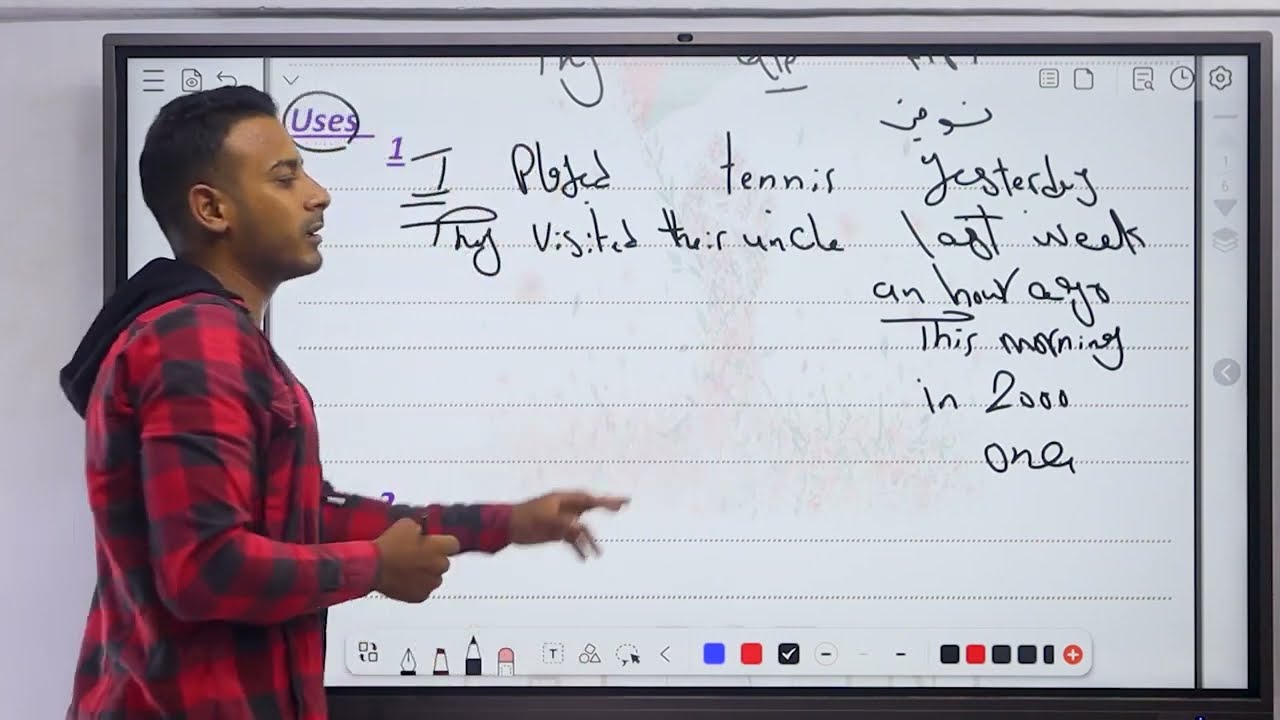 Uses
1 I Played tennis yesterday
They visited their uncle last week
an hour ago
This morning
in 2000
once
2